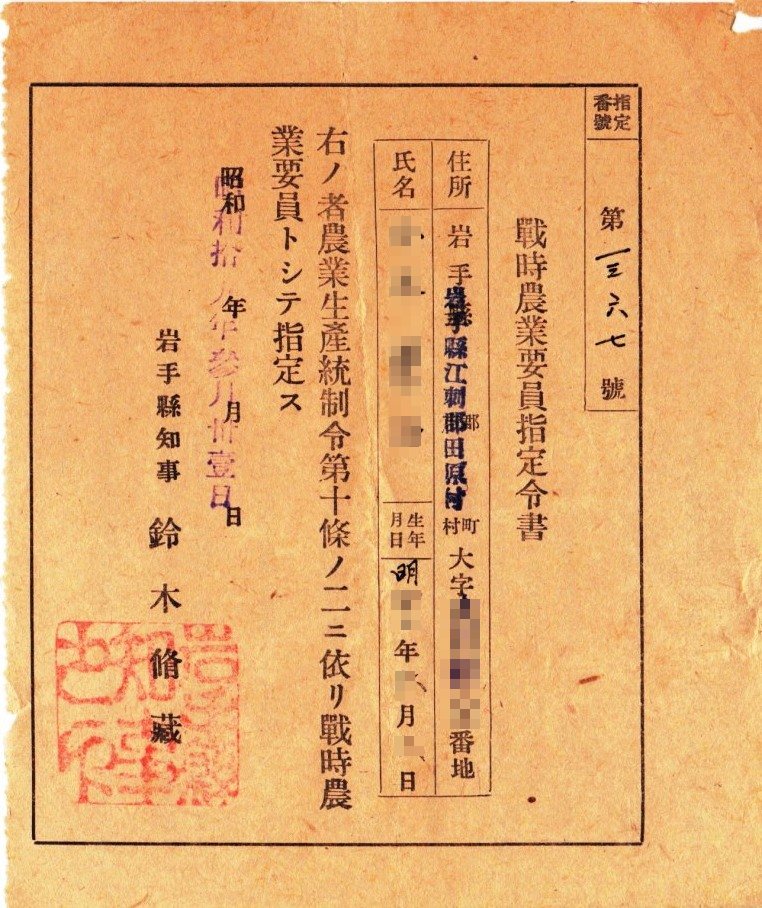 指定番號
第一三六七號
戰時農業要員指定令書
住所 岩手縣 郡 町村 大字 番地
岩手縣江刺郡田原村
氏名 生年月日 明 年 月 日
右ノ者農業生產統制令第十條ノ二ニ依リ戰時農
業要員トシテ指定ス
昭和 年 月 日
昭和拾九年參月卅壹日
岩手縣知事 鈴木脩藏